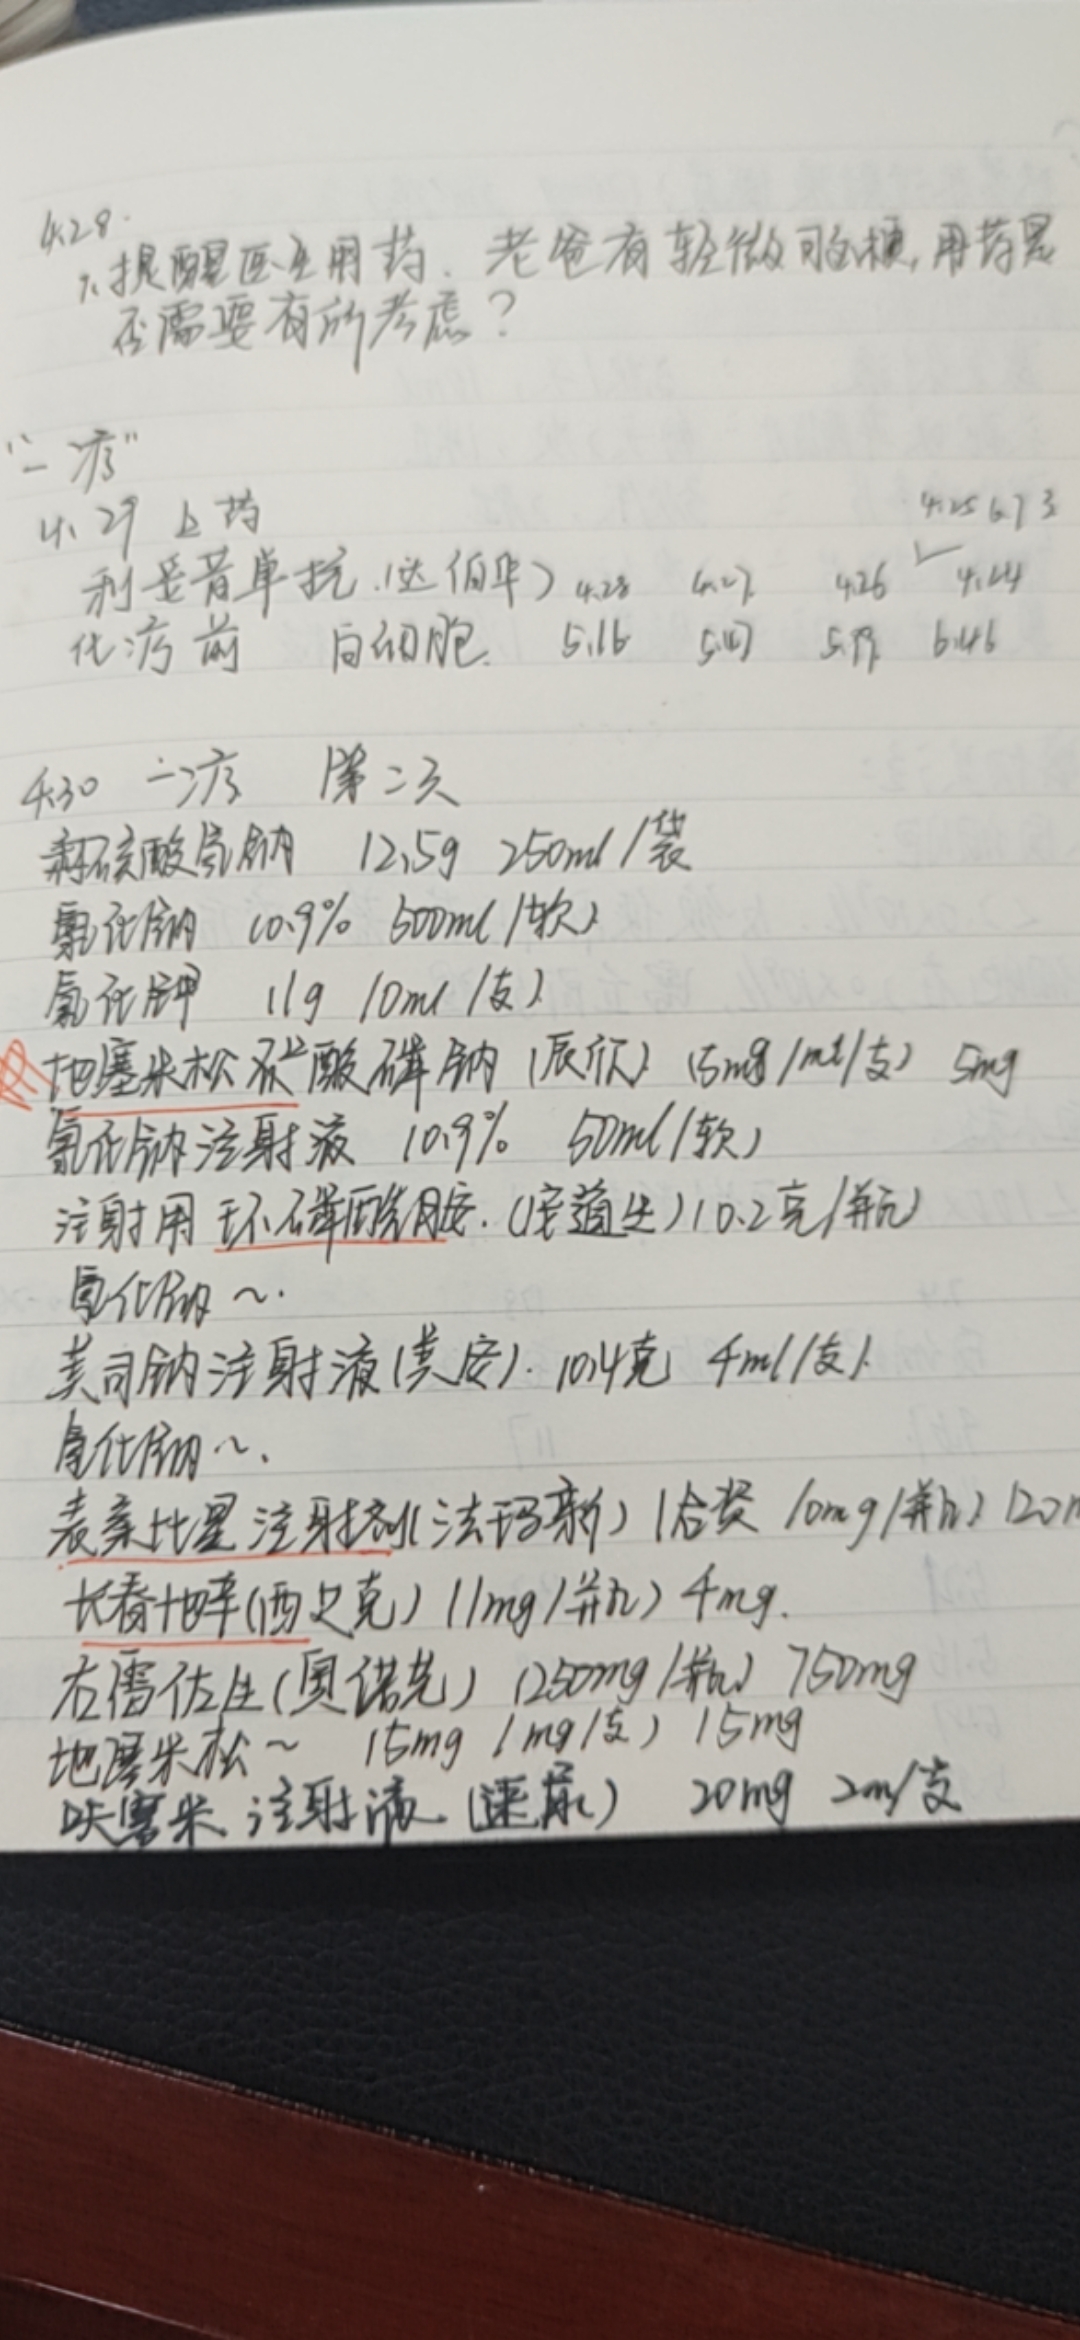 4.28.
1. 提醒医生用药. 老爸有轻微 梗, 用药是
否需要有所考虑?
"一疗"
4.29 上药
4.25 6.73
利妥昔单抗.(达伯华) 4.28 4.27 4.26 4.24
化疗前 白细胞. 5.16 5.47 6.46
4.30 一疗 第二天
碳酸氢钠 12.5g 250ml/袋
氯化钠 (0.9% 500ml/软)
氯化钾 (1g 10ml/支)
地塞米松 酸磷钠 (辰欣) (5mg/ml/支) 5mg
氯化钠注射液 (0.9% 50ml/软)
注射用环磷酰胺. (安道生) (0.2克/瓶)
氯化钠~.
美司钠注射液(美安). (0.4克 4ml/支).
氯化钠~.
表柔比星注射剂(法玛新) (台赞 10mg/瓶) 120m
长春地辛(西艾克) (1mg/瓶) 4mg.
右雷佐生(奥诺先) (250mg/瓶) 750mg
地塞米松~ (5mg 1mg/支) 15mg
呋塞米注射液 (速尿) 20mg 2m/支